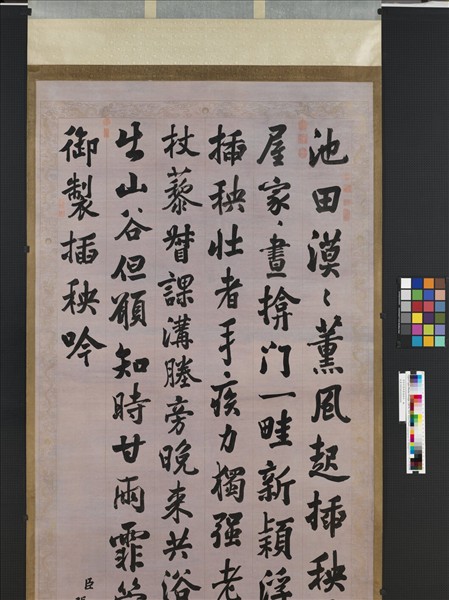 池田漠〻薰風起插秧
屋家〻晝揜门一畦新穎浮
插秧壯者手疾力獨强老
杖藜督課溝塍旁晚来共浴
生山谷但願知時甘雨霏
御製插秧吟
臣